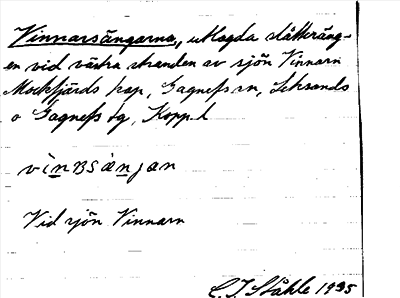 Vinnarsängarna, utlagda slåtteräng-
en vid västra stranden av sjön Vinnarn
Mockfjärds kap, Gagnefs sn, Leksands
o Gagnefs tg, Kopp. l
vìnʙsàenjan
Vid sjön Vinnarn
C. J. Ståhle 1935